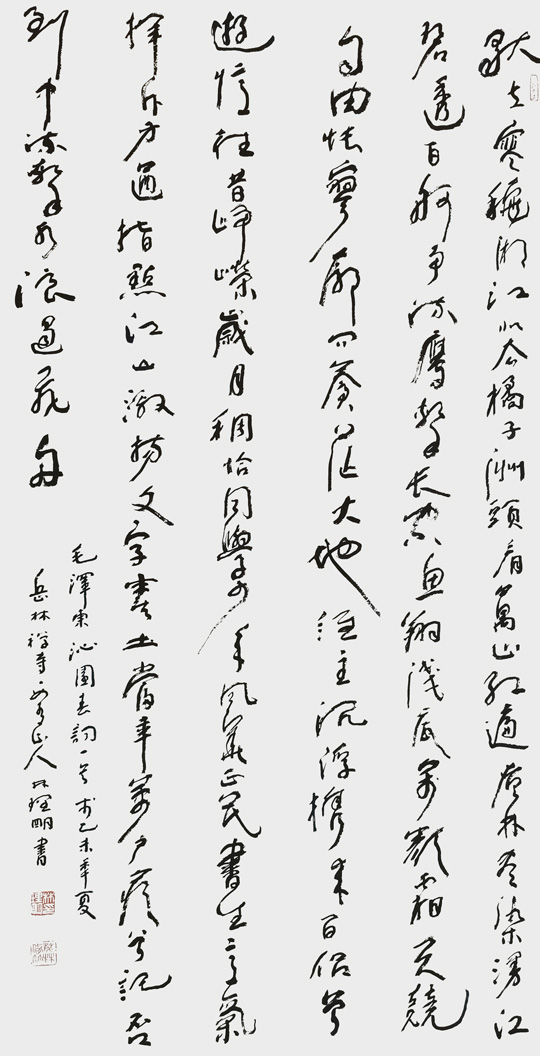 獨立寒穐湘江北去橘子洲頭看萬山紅遍層林盡染漫江
碧透百舸爭流鷹擊長空魚翔淺底萬類霜天競
自由悵寥廓問蒼茫大地誰主沉浮攜來百侶曾
遊憶往昔崢嶸歲月稠恰同學少年風華正茂書生意氣
揮斥方遒指點江山激揚文字糞土當年萬戶侯曾記否
到中流擊水浪遏飛舟
毛澤東沁園春詞一首於乙未年夏
岳林禪寺山人明書